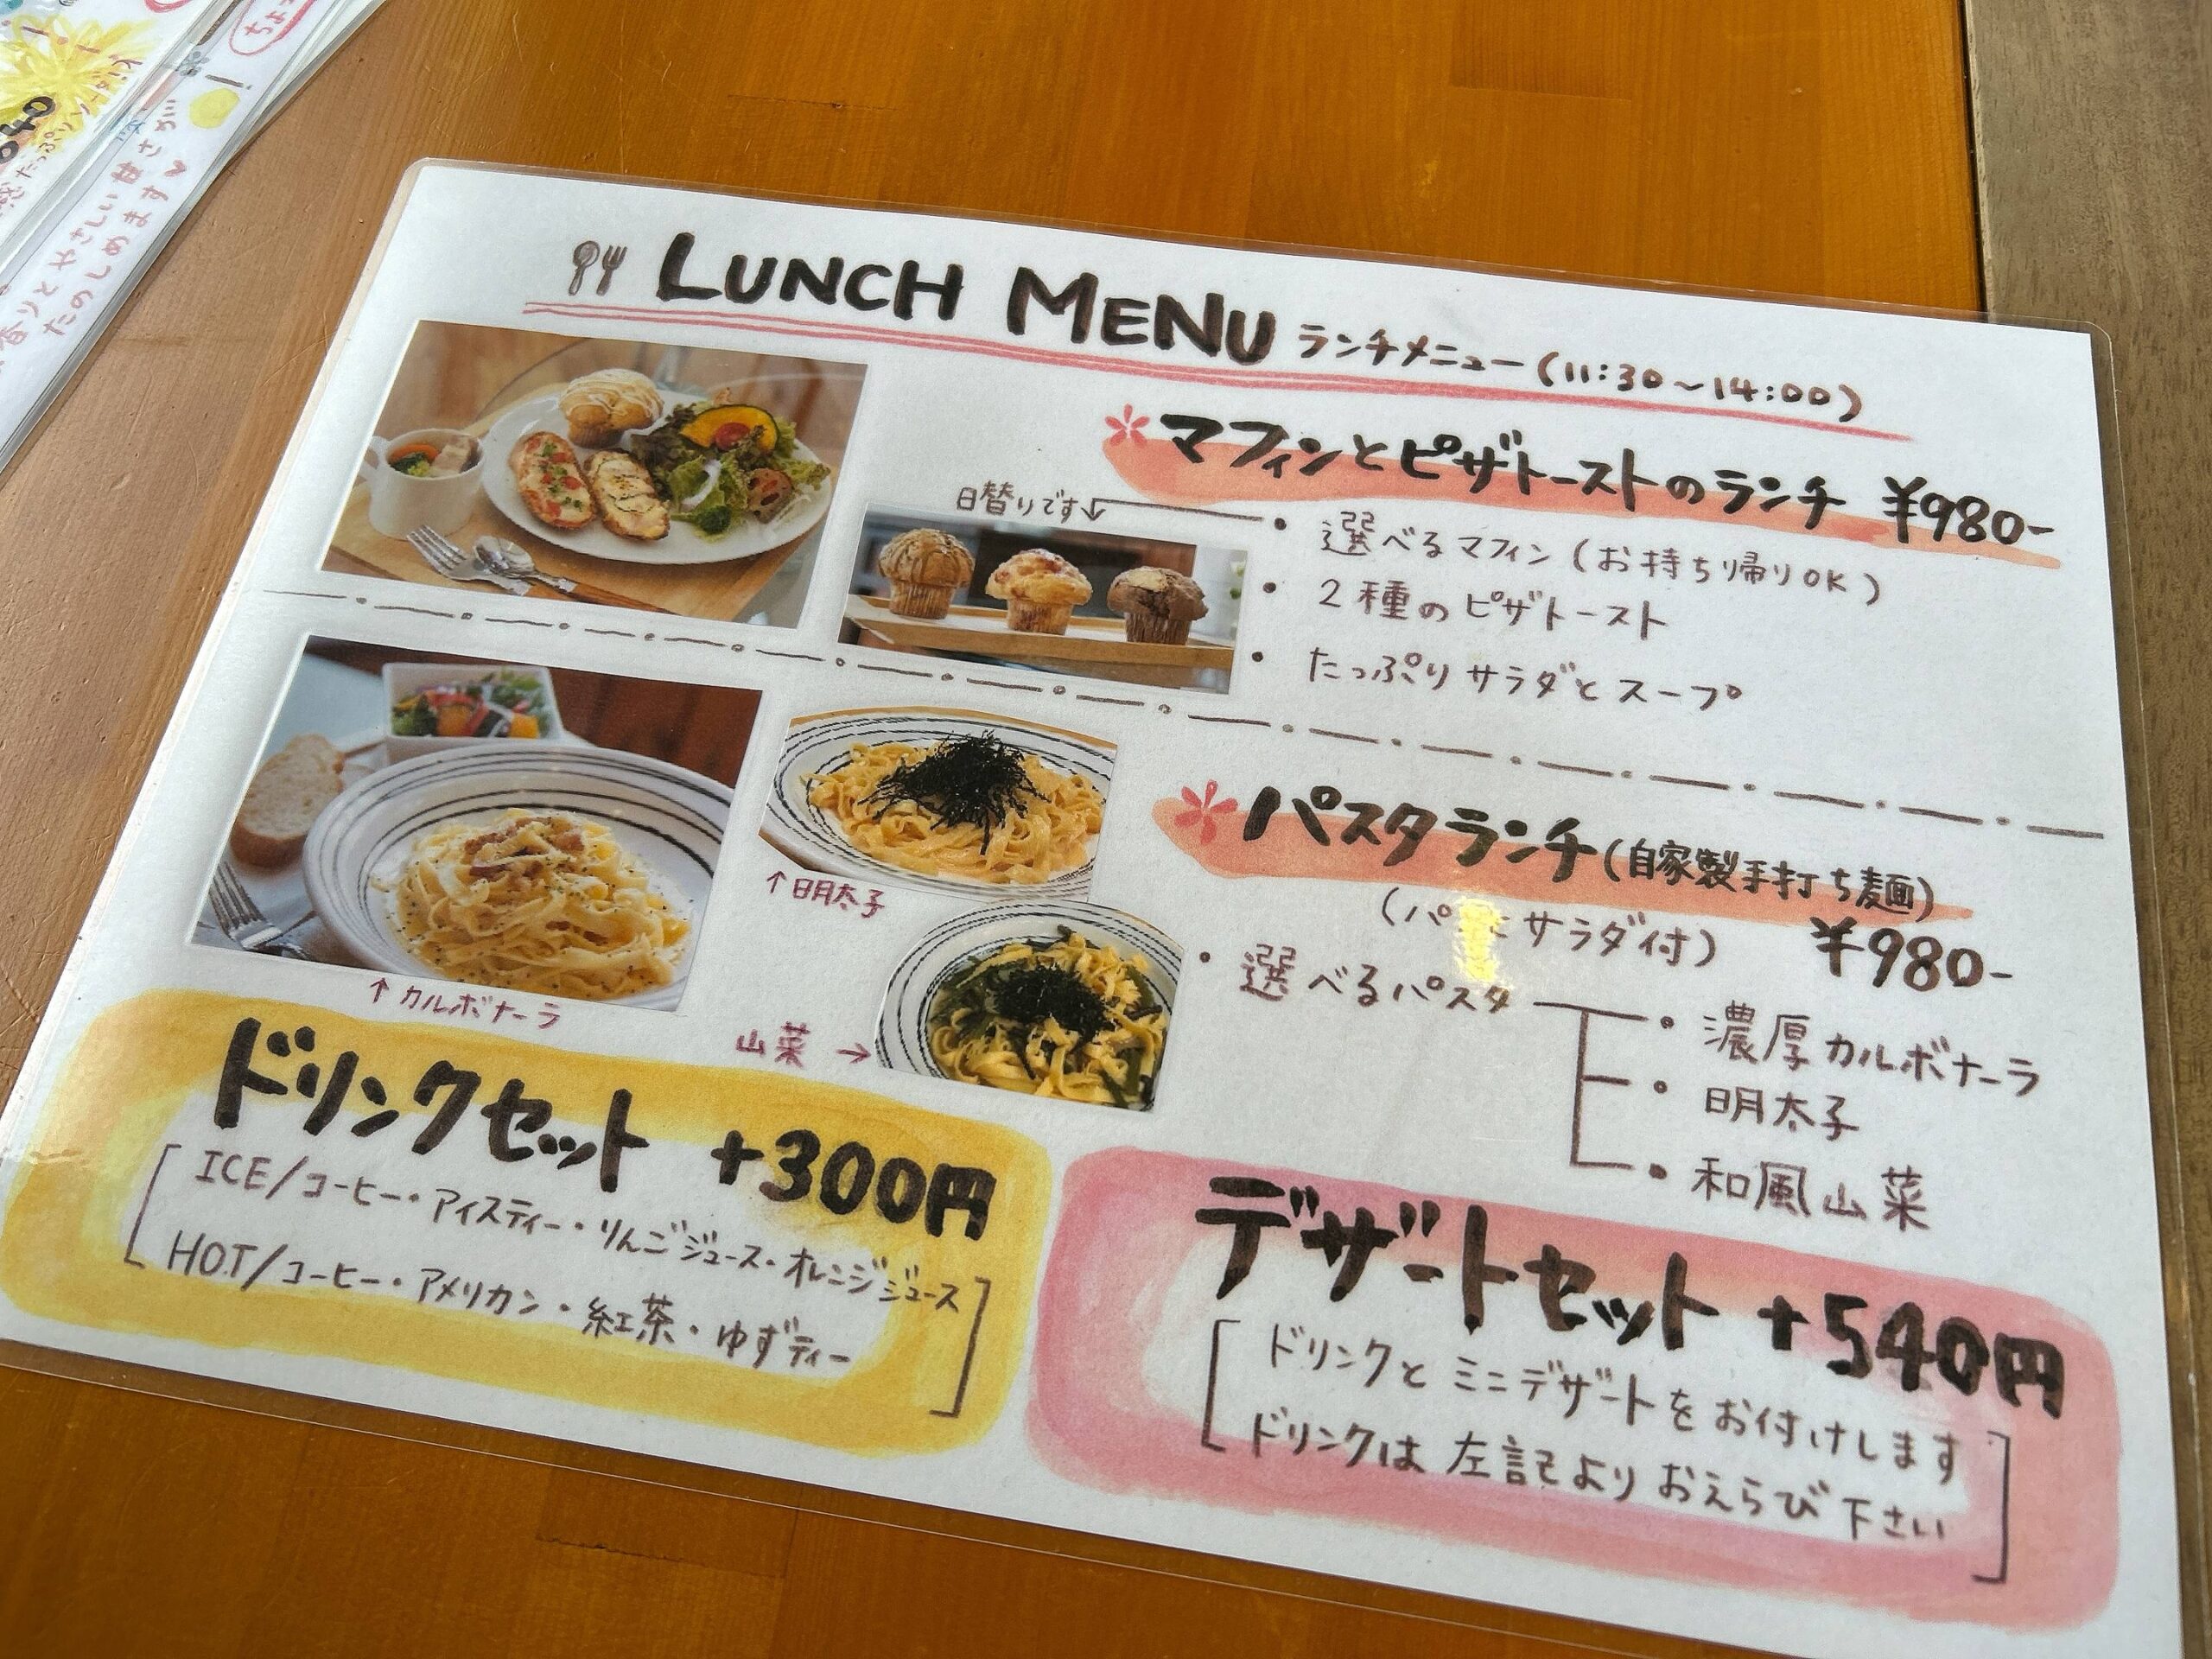 LUNCH MENU ランチメニュー(11:30~14:00)
マフィンとピザトーストのランチ ¥980-
日替りです
・選べるマフィン(お持ち帰りOK)
・2種のピザトースト
・たっぷりサラダとスープ
パスタランチ(自家製手打ち麺)
サラダ付) ¥980-
・選べるパスタ
・濃厚カルボナーラ
・明太子
・和風山菜
↑明太子
↑カルボナーラ
山菜→
ドリンクセット +300円
ICE/コーヒー・アイスティー・りんごジュース・オレンジジュース
HOT/コーヒー・アメリカン・紅茶・ゆずティー
デザートセット +540円
ドリンクとミニデザートをお付けします
ドリンクは左記よりおえらび下さい
香りとやさしい甘さが
たのしめます